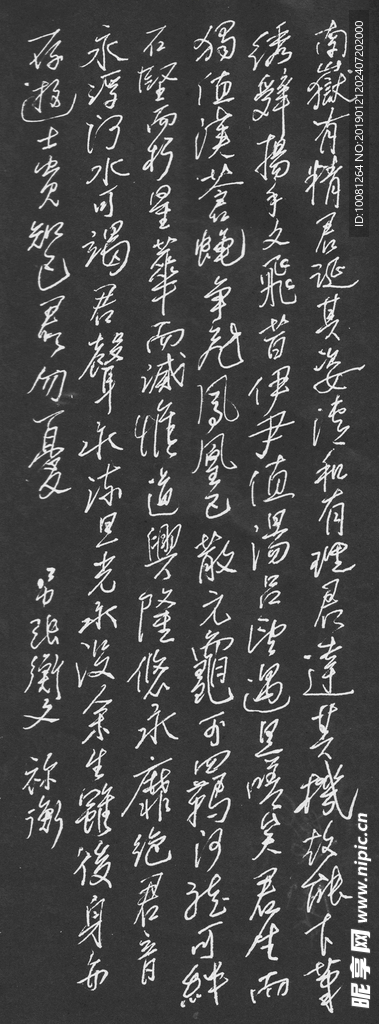 南嶽有精君誕其姿清和有理君達其機故能下筆
绣辭揚手文飛昔伊尹值湯吕望遇旦嗟矣君生而
獨值漢蒼蝇争飛鳳凰已散元龜可羁河龍可絆
石堅而朽星華而滅惟道興隆悠永靡絶君音
永浮河水可竭君聲永流旦光永没余生雖後身亦
存遊士貴知已君勿憂
吊張衡文 祢衡
ID:10081264 NO:20190121202407202000
昵享网 www.nipic.cn